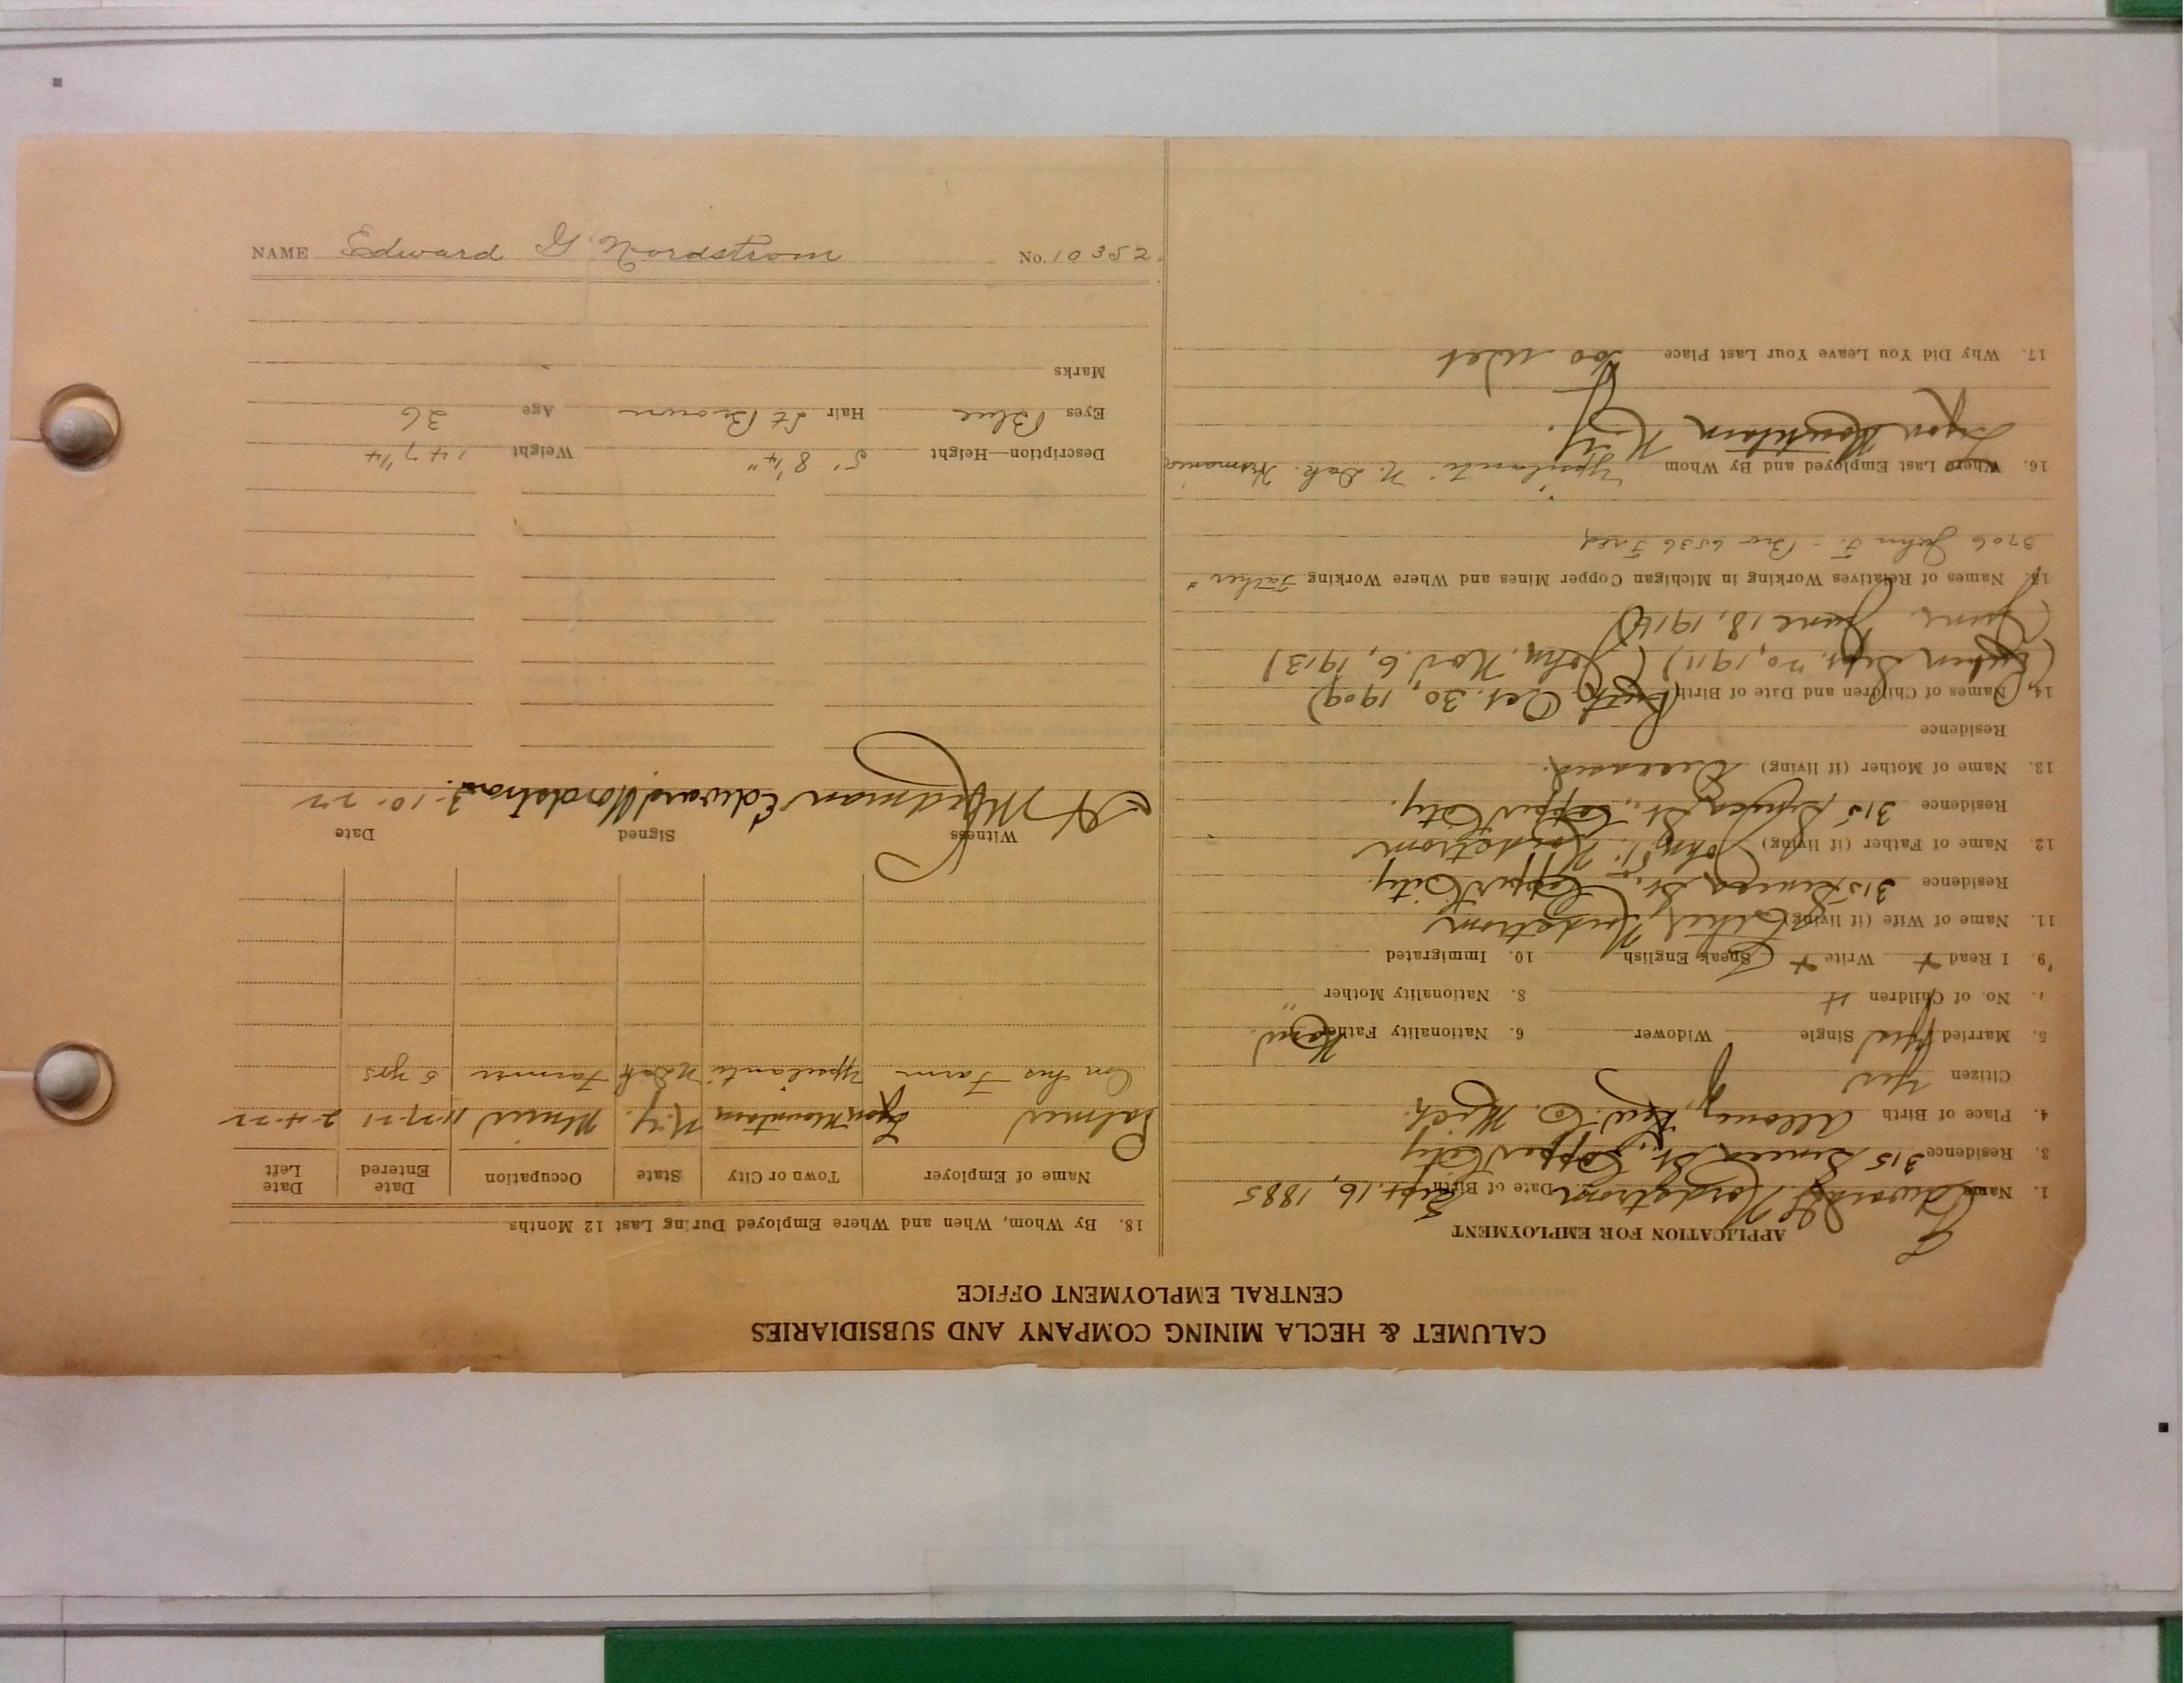 CALUMET & HECLA MINING COMPANY AND SUBSIDIARIES
CENTRAL EMPLOYMENT OFFICE
APPLICATION FOR EMPLOYMENT
1. Name Edward G. Nordstrom 2. Date of Birth Sept. 16, 1885
3. Residence 315 Seneca St., Copper City
4. Place of Birth Allouez, Kew. Co. Mich.
Citizen Yes
5. Married Yes Single Widower 6. Nationality Father
7. No. of Children 4 8. Nationality Mother "
9. I Read + Write + Speak English 10. Immigrated
11. Name of Wife (if living) Nordstrom
Residence 315 Seneca St., Copper City.
12. Name of Father (if living) John F. Nordstrom
Residence 315 Seneca St., Copper City.
13. Name of Mother (if living) Deceased.
Residence
14. Names of Children and Date of Birth (Ruth Oct. 30, 1909)
Sept. 20, 1911) (John, Nov. 6, 1913)
(June. June 18, 1914)
15. Names of Relatives Working in Michigan Copper Mines and Where Working Father
3706 John F. - Bro 6536 Fred
16. Where Last Employed and By Whom Ypsilanti N. Dak.
Lyon Mountain N.Y.
17. Why Did You Leave Your Last Place Too Wet
18. By Whom, When and Where Employed During Last 12 Months
Name of Employer Town or City State Occupation Date Entered Date Left
Palmer Lyon Mountain N.Y. Miner 11-27-21 2-4-22
On his Farm Ypsilanti N Dak Farmer 5 yrs
Witness Signed Date
Edward Nordstrom 3-10-22
Description—Height 5' 8 1/4" Weight 147 1/4
Eyes Blue Hair Lt Brown Age 36
Marks
NAME Edward G Nordstrom No. 10352